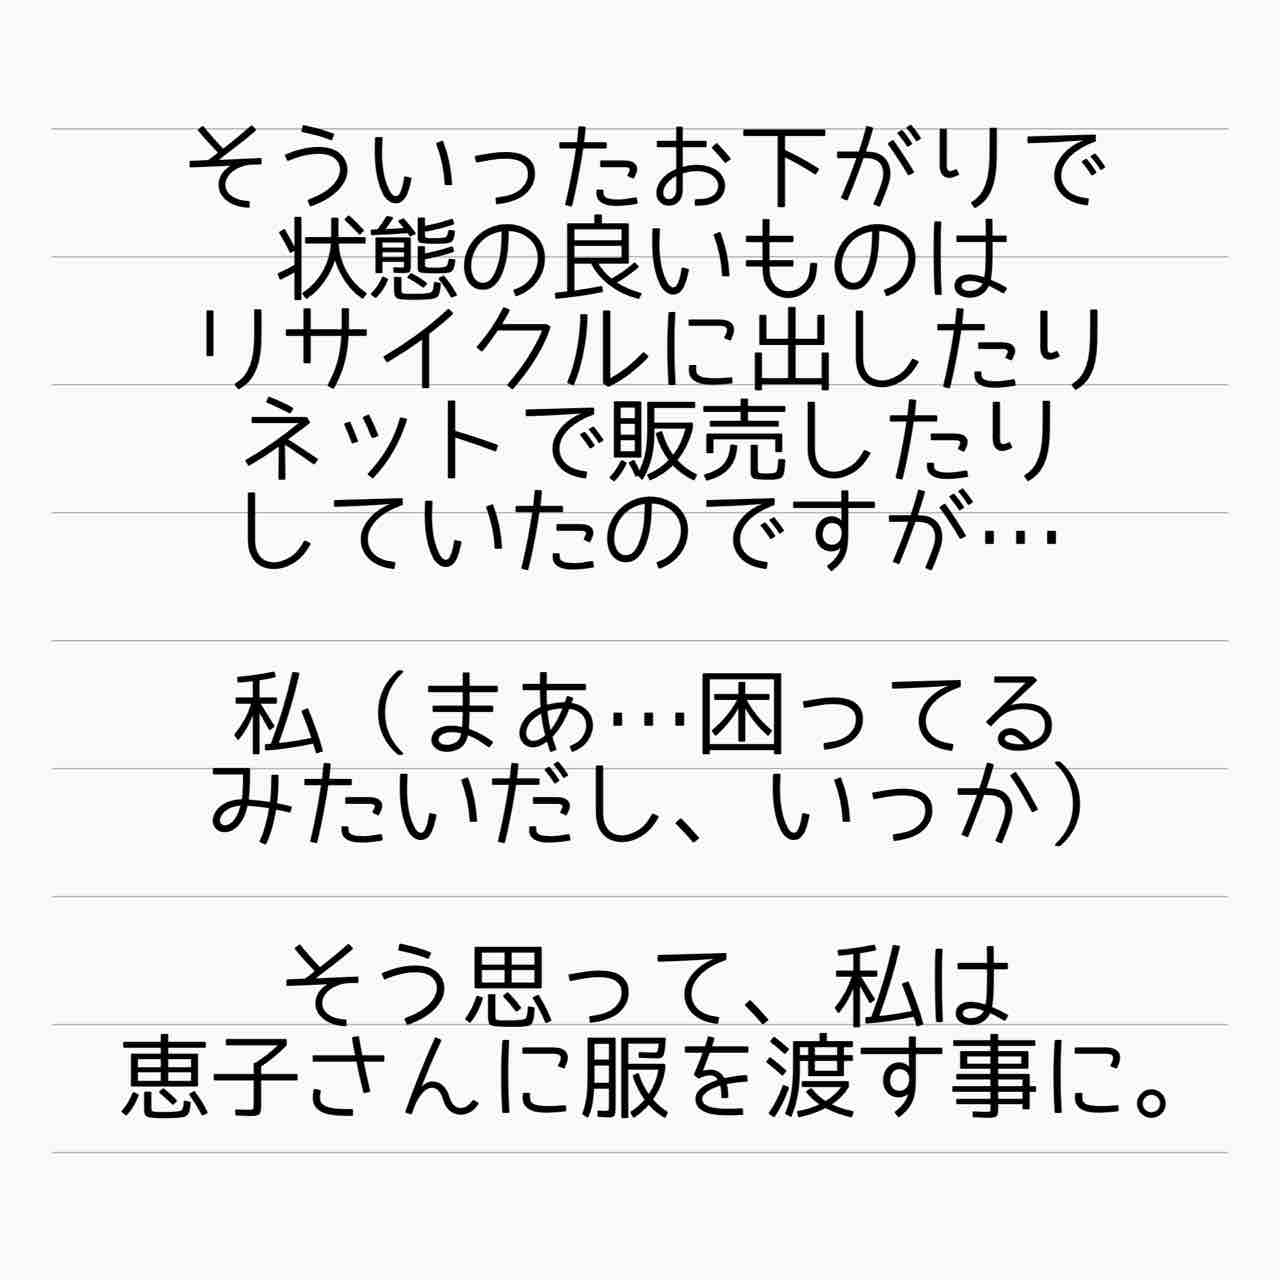 そういったお下がりで
状態の良いものは
リサイクルに出したり
ネットで販売したり
していたのですが…
私（まあ…困ってる
みたいだし、いっか）
そう思って、私は
恵子さんに服を渡す事に。